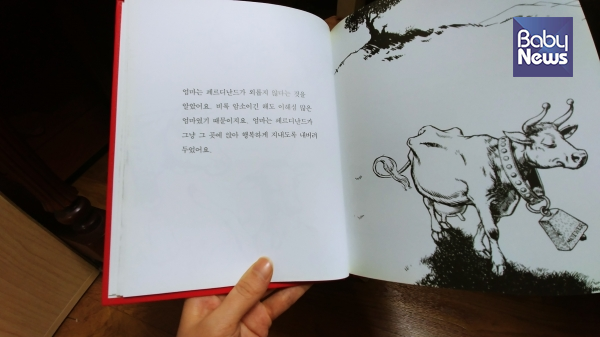 Baby
News
엄마는 페르디난드가 외롭지 않다는 것을
알았어요. 비록 암소이긴 해도 이해심 많은
엄마였기 때문이지요. 엄마는 페르디난드가
그냥 그 곳에 앉아 행복하게 지내도록 내버려
두었어요.